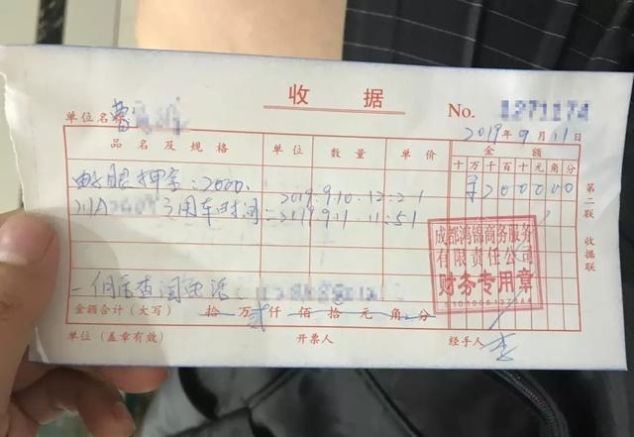 收据
No. 1271174
单位名称 曹
2019年9月11日
品名及规格 单位 数量 单价 金额
十万千百十元角分
押金:2000. ¥200000
川A 用车时间:2019.9.10.12:21
2019 9.11 11:51
第二联 收据联
成都 商务服务
有限责任公司
财务专用章
一个月后查询电话
金额合计(大写) 拾 万 贰仟 佰 拾 元 角 分
单位(盖章有效) 开票人 经手人 李